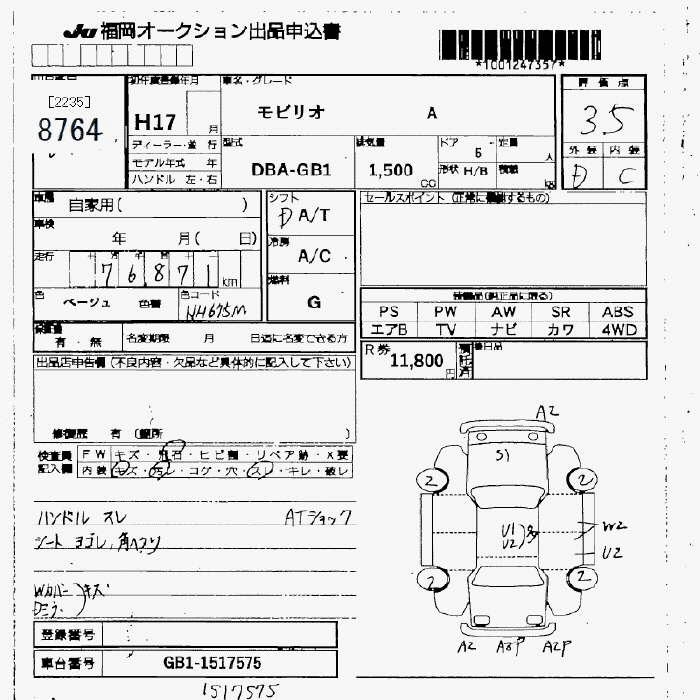 JU 福岡オークション出品申込書
*1001247357*
[2235]
8764
初年度登録年月
H17 月
車名・グレード
モビリオ A
評価点
3.5
外装 内装
D C
ディーラー・並行
モデル年式 年
ハンドル 左・右
型式
DBA-GB1
排気量
1,500 CC
ドア 5
形状 H/B
定員 人
積載 kg
車歴
自家用( )
車検
年 月( 日)
走行
76871 km
色 ベージュ 色番
色コード
NH675M
シフト
D A/T
冷房
A/C
燃料
G
セールスポイント (正常に機能するもの)
装備品(純正品に限る)
PS PW AW SR ABS
エアB TV ナビ カワ 4WD
保証書
有・無
名変期限 月 日迄に名変できる方
R券
11,800 円
預託済
後日品
出品店申告欄(不良内容・欠品など具体的に記入して下さい)
修復歴 有(箇所 )
検査員記入欄
FW キズ・飛石・ヒビ割・リペア跡・X要
内装 キズ・汚レ・コゲ・穴・スレ・キレ・破レ
ハンドル スレ ATショック
シート ヨゴレ,角ヘタリ
Wカバー キズ
登録番号
車台番号 GB1-1517575
1517575
A2
S1
2 2
U1
U2 多
W2
U2
2 2
A2 A3P A2P